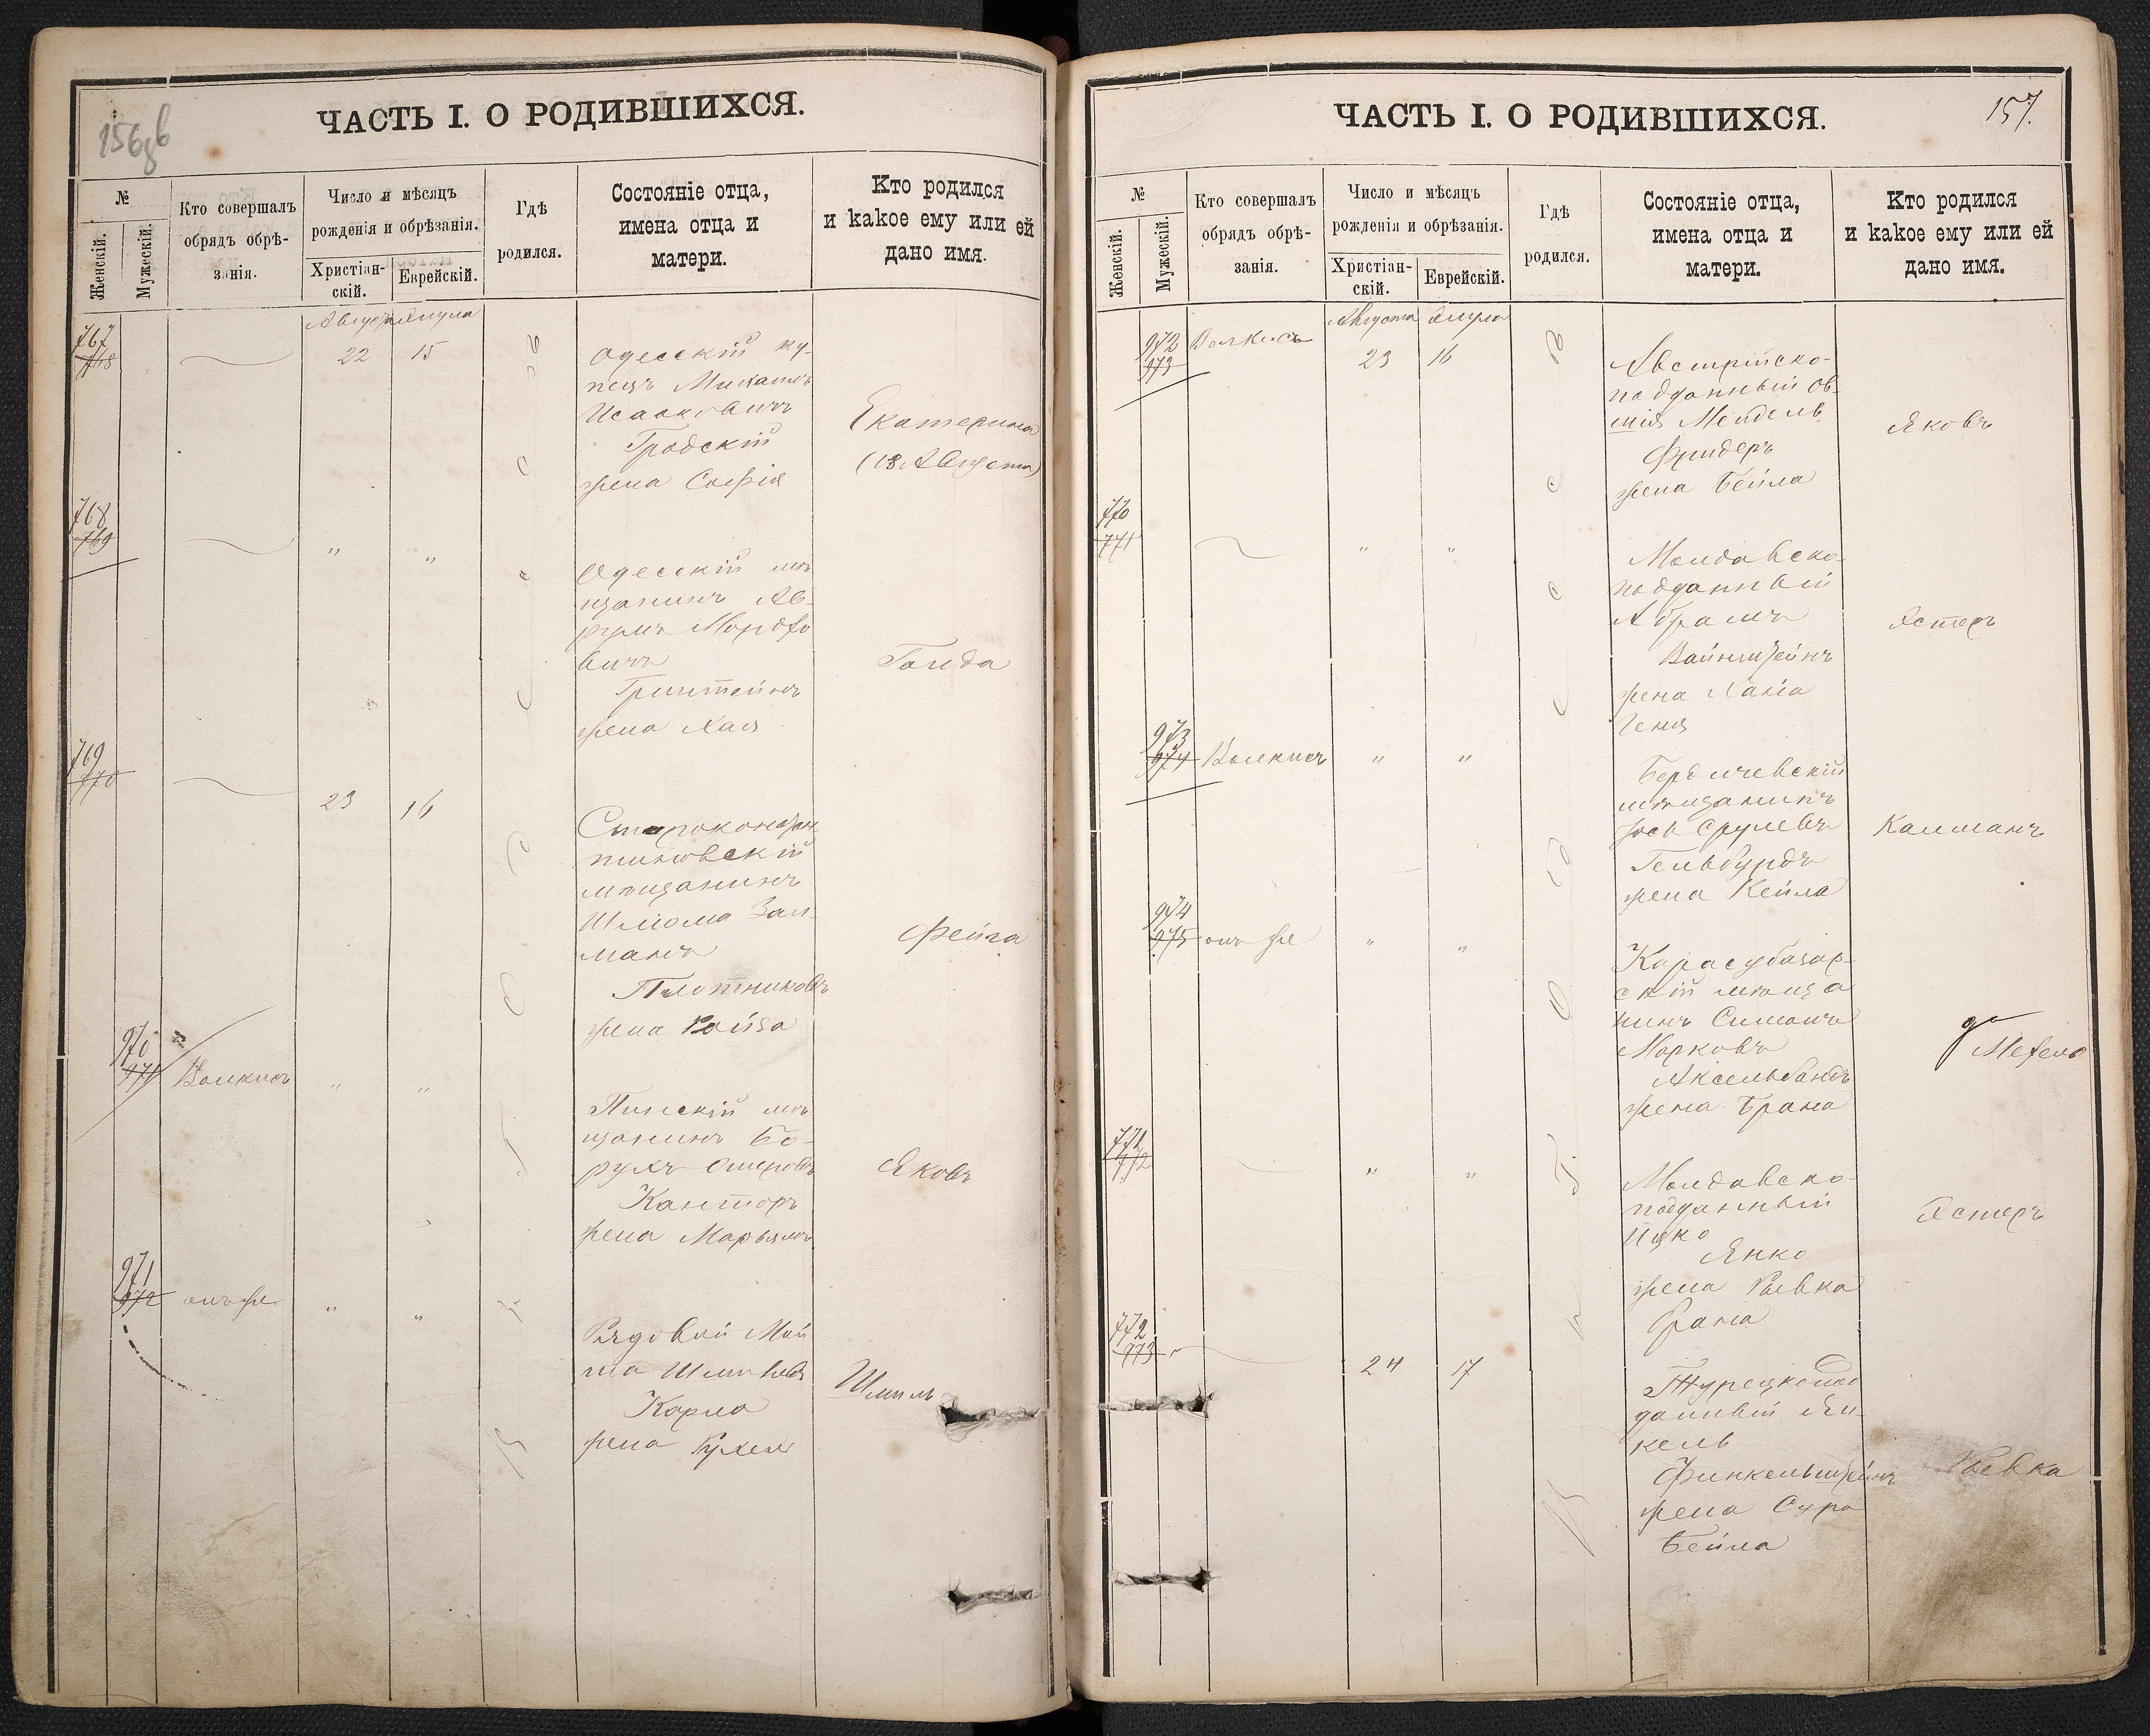 156об
ЧАСТЬ I. О РОДИВШИХСЯ.
№
Женскій.
Мужескій.
Кто совершалъ
обрядъ обрѣ-
занія.
Число и мѣсяцъ
рожденія и обрѣзанія.
Христіан-
скій.
Еврейскій.
Гдѣ
родился.
Состояніе отца,
имена отца и
матери.
Кто родился
и какое ему или ей
дано имя.
Августа Элула
767
768
22 15
Одесскій ку-
пецъ
Исааковичъ
Гродскій
жена Софія
Екатерина
(18 Августа)
768
769
" "
Одесскій мѣ
щанинъ Ав-
румъ Мордко
вичъ
Гринштейнъ
жена Хая
Голда
769
770
23 16
Староконстан
тиновскій
мѣщанинъ
Шлиома Зал-
манъ
Плотниковъ
жена Ройза
Фейга
970
971
Волкисъ " "
Пинскій мѣ
щанинъ Бо-
рухъ Ошеровъ
Канторъ
жена Марьямъ
Яковъ
971
972
онъ же " "
Рядовой Мой
ша
Карла
жена Рухля
Шмиль
157.
ЧАСТЬ I. О РОДИВШИХСЯ.
№
Женскій.
Мужескій.
Кто совершалъ
обрядъ обрѣ-
занія.
Число и мѣсяцъ
рожденія и обрѣзанія.
Христіан-
скій.
Еврейскій.
Гдѣ
родился.
Состояніе отца,
имена отца и
матери.
Кто родился
и какое ему или ей
дано имя.
Августа Элула
972
973
Волкисъ 23 16
Австрійско-
подданный Ов-
шія Мендель
Фридеръ
жена Бейла
Яковъ
770
771
" "
Молдавско-
подданный
Абрамъ
Вайнштейнъ
жена Хаиа
Геня
Эстеръ
973
974
Волкисъ " "
Бердичевскій
мѣщанинъ
Іось Срулевъ
Гельбурдъ
жена Кейла
Калманъ
974
975
онъ же " "
Карасубазар-
скій мѣща
нинъ Симонъ
Марковъ
Аксельбандъ
жена Брана
Мехель
771
772
" "
Молдавско-
подданный
Ицко
Янко
жена Ривка
Франа
Эстеръ
772
773
24 17
Турецкопод
данный Ян-
кель
Финкельштейнъ
жена Сура
Бейла
Ривка